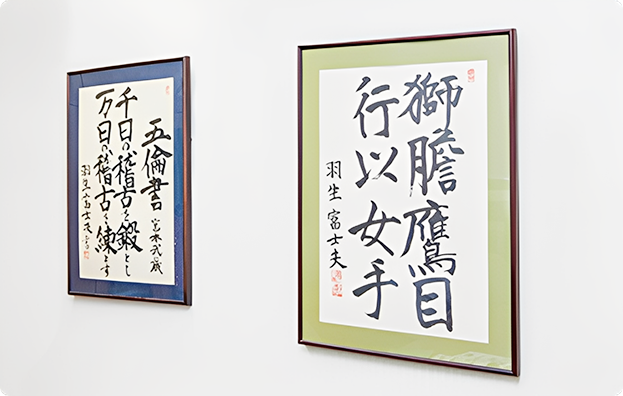 五倫書
宮本武蔵
千日の稽古を鍛とし
万日の稽古を練とす
羽生富士夫書
獅膽鷹目
行以女手
羽生富士夫